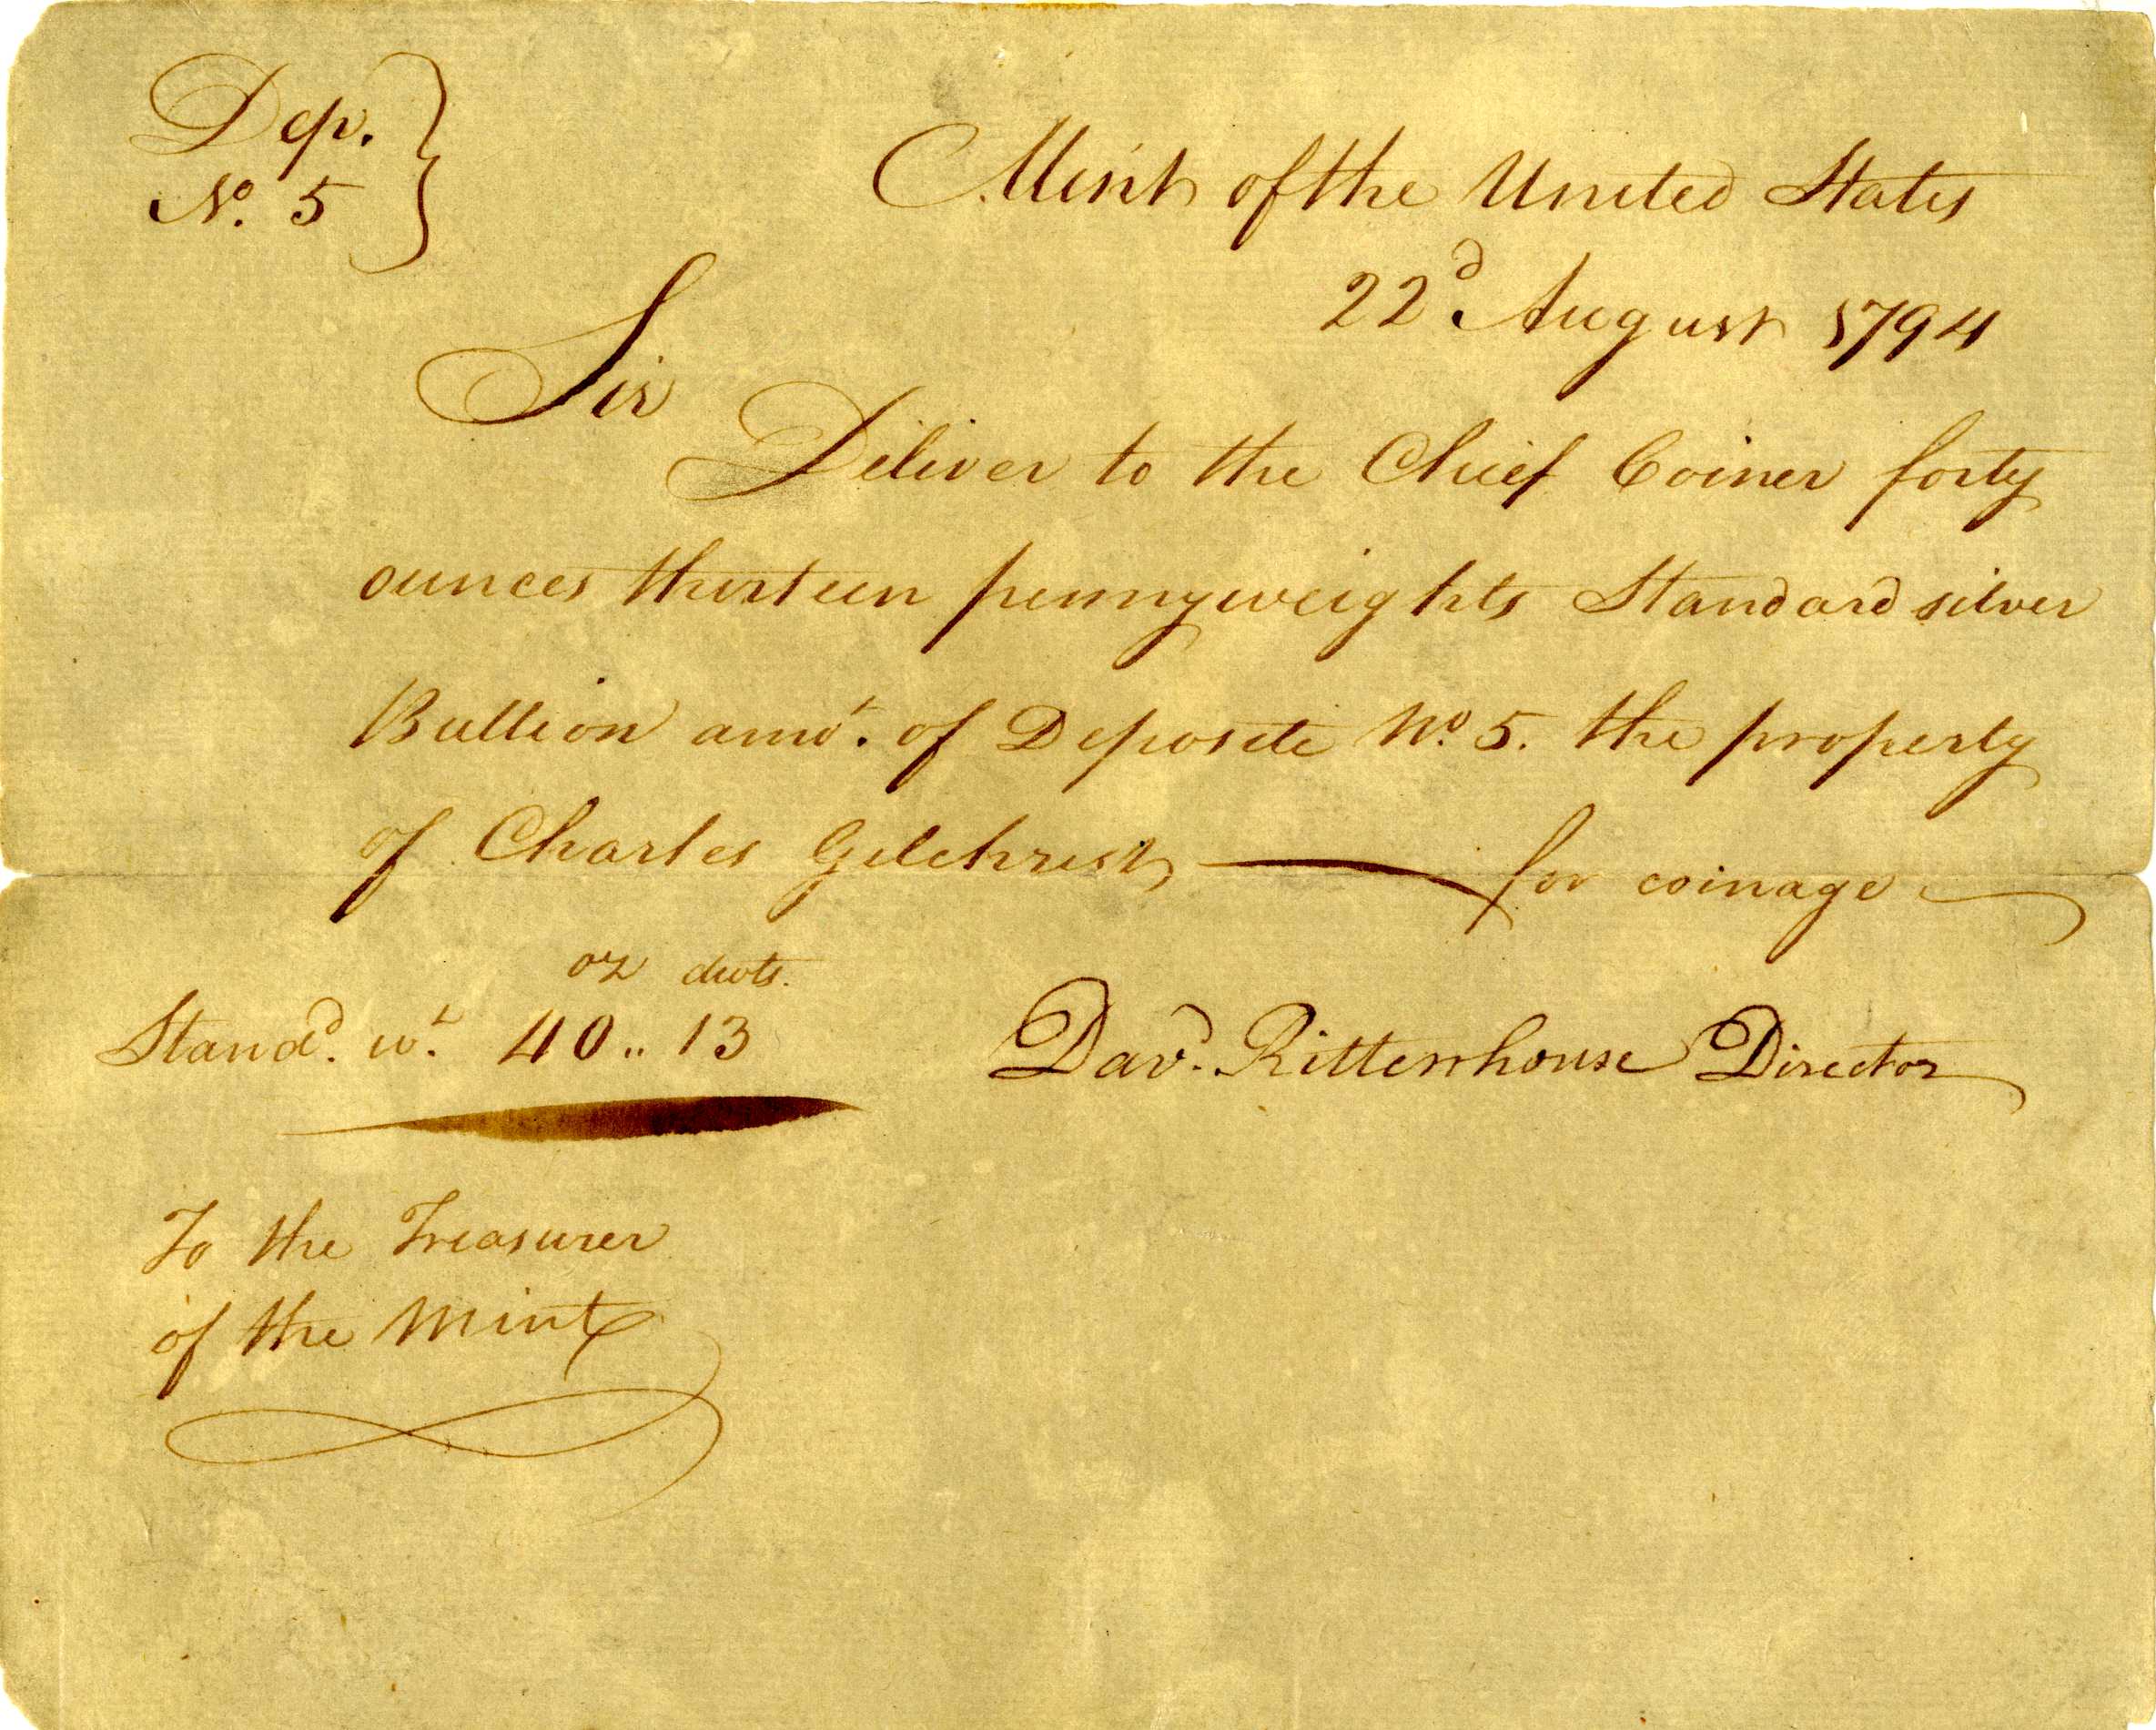 Dep.
No. 5
Mint of the United States
22d. August 1794
Sir
Deliver to the Chief Coiner forty
ounces thirteen pennyweights Standard silver
Bullion amot. of Deposite No. 5. the property
of Charles Gilchrist for coinage
oz dwts.
Standd. wt. 40.. 13
Davd. Rittenhouse Director
To the Treasurer
of the Mint